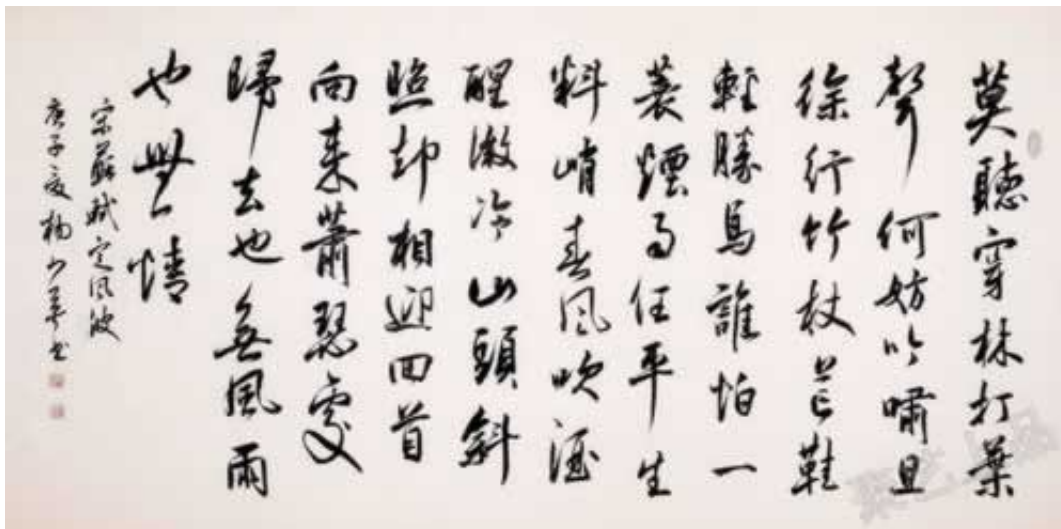 莫聽穿林打葉
聲何妨吟嘯且
徐行竹杖芒鞋
輕勝馬誰怕一
蓑煙雨任平生
料峭春風吹酒
醒微冷山頭斜
照却相迎回首
向来蕭瑟處
歸去也無風雨
也無情
宋蘇軾定風波
庚子夏楊少英书